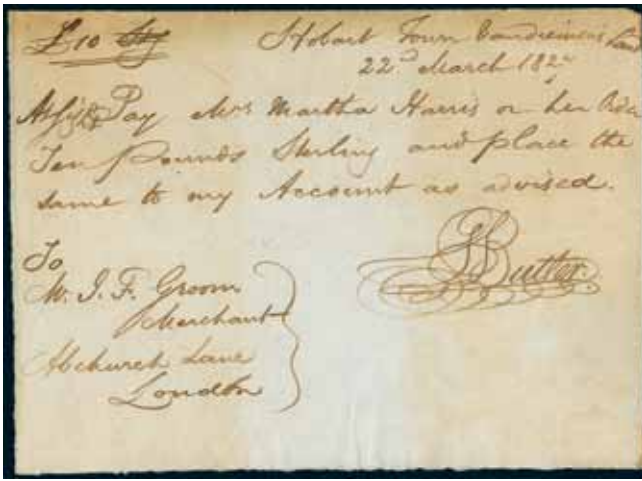 £10 Stg
Hobart Town Vandiemens Land
22d March 182
At Sight Pay Mrs Martha Harris or her Order
Ten Pounds Sterling and place the
same to my Account as advised.
To
Mr. J. F. Groom
Merchant
Abchurch Lane
London
Butler